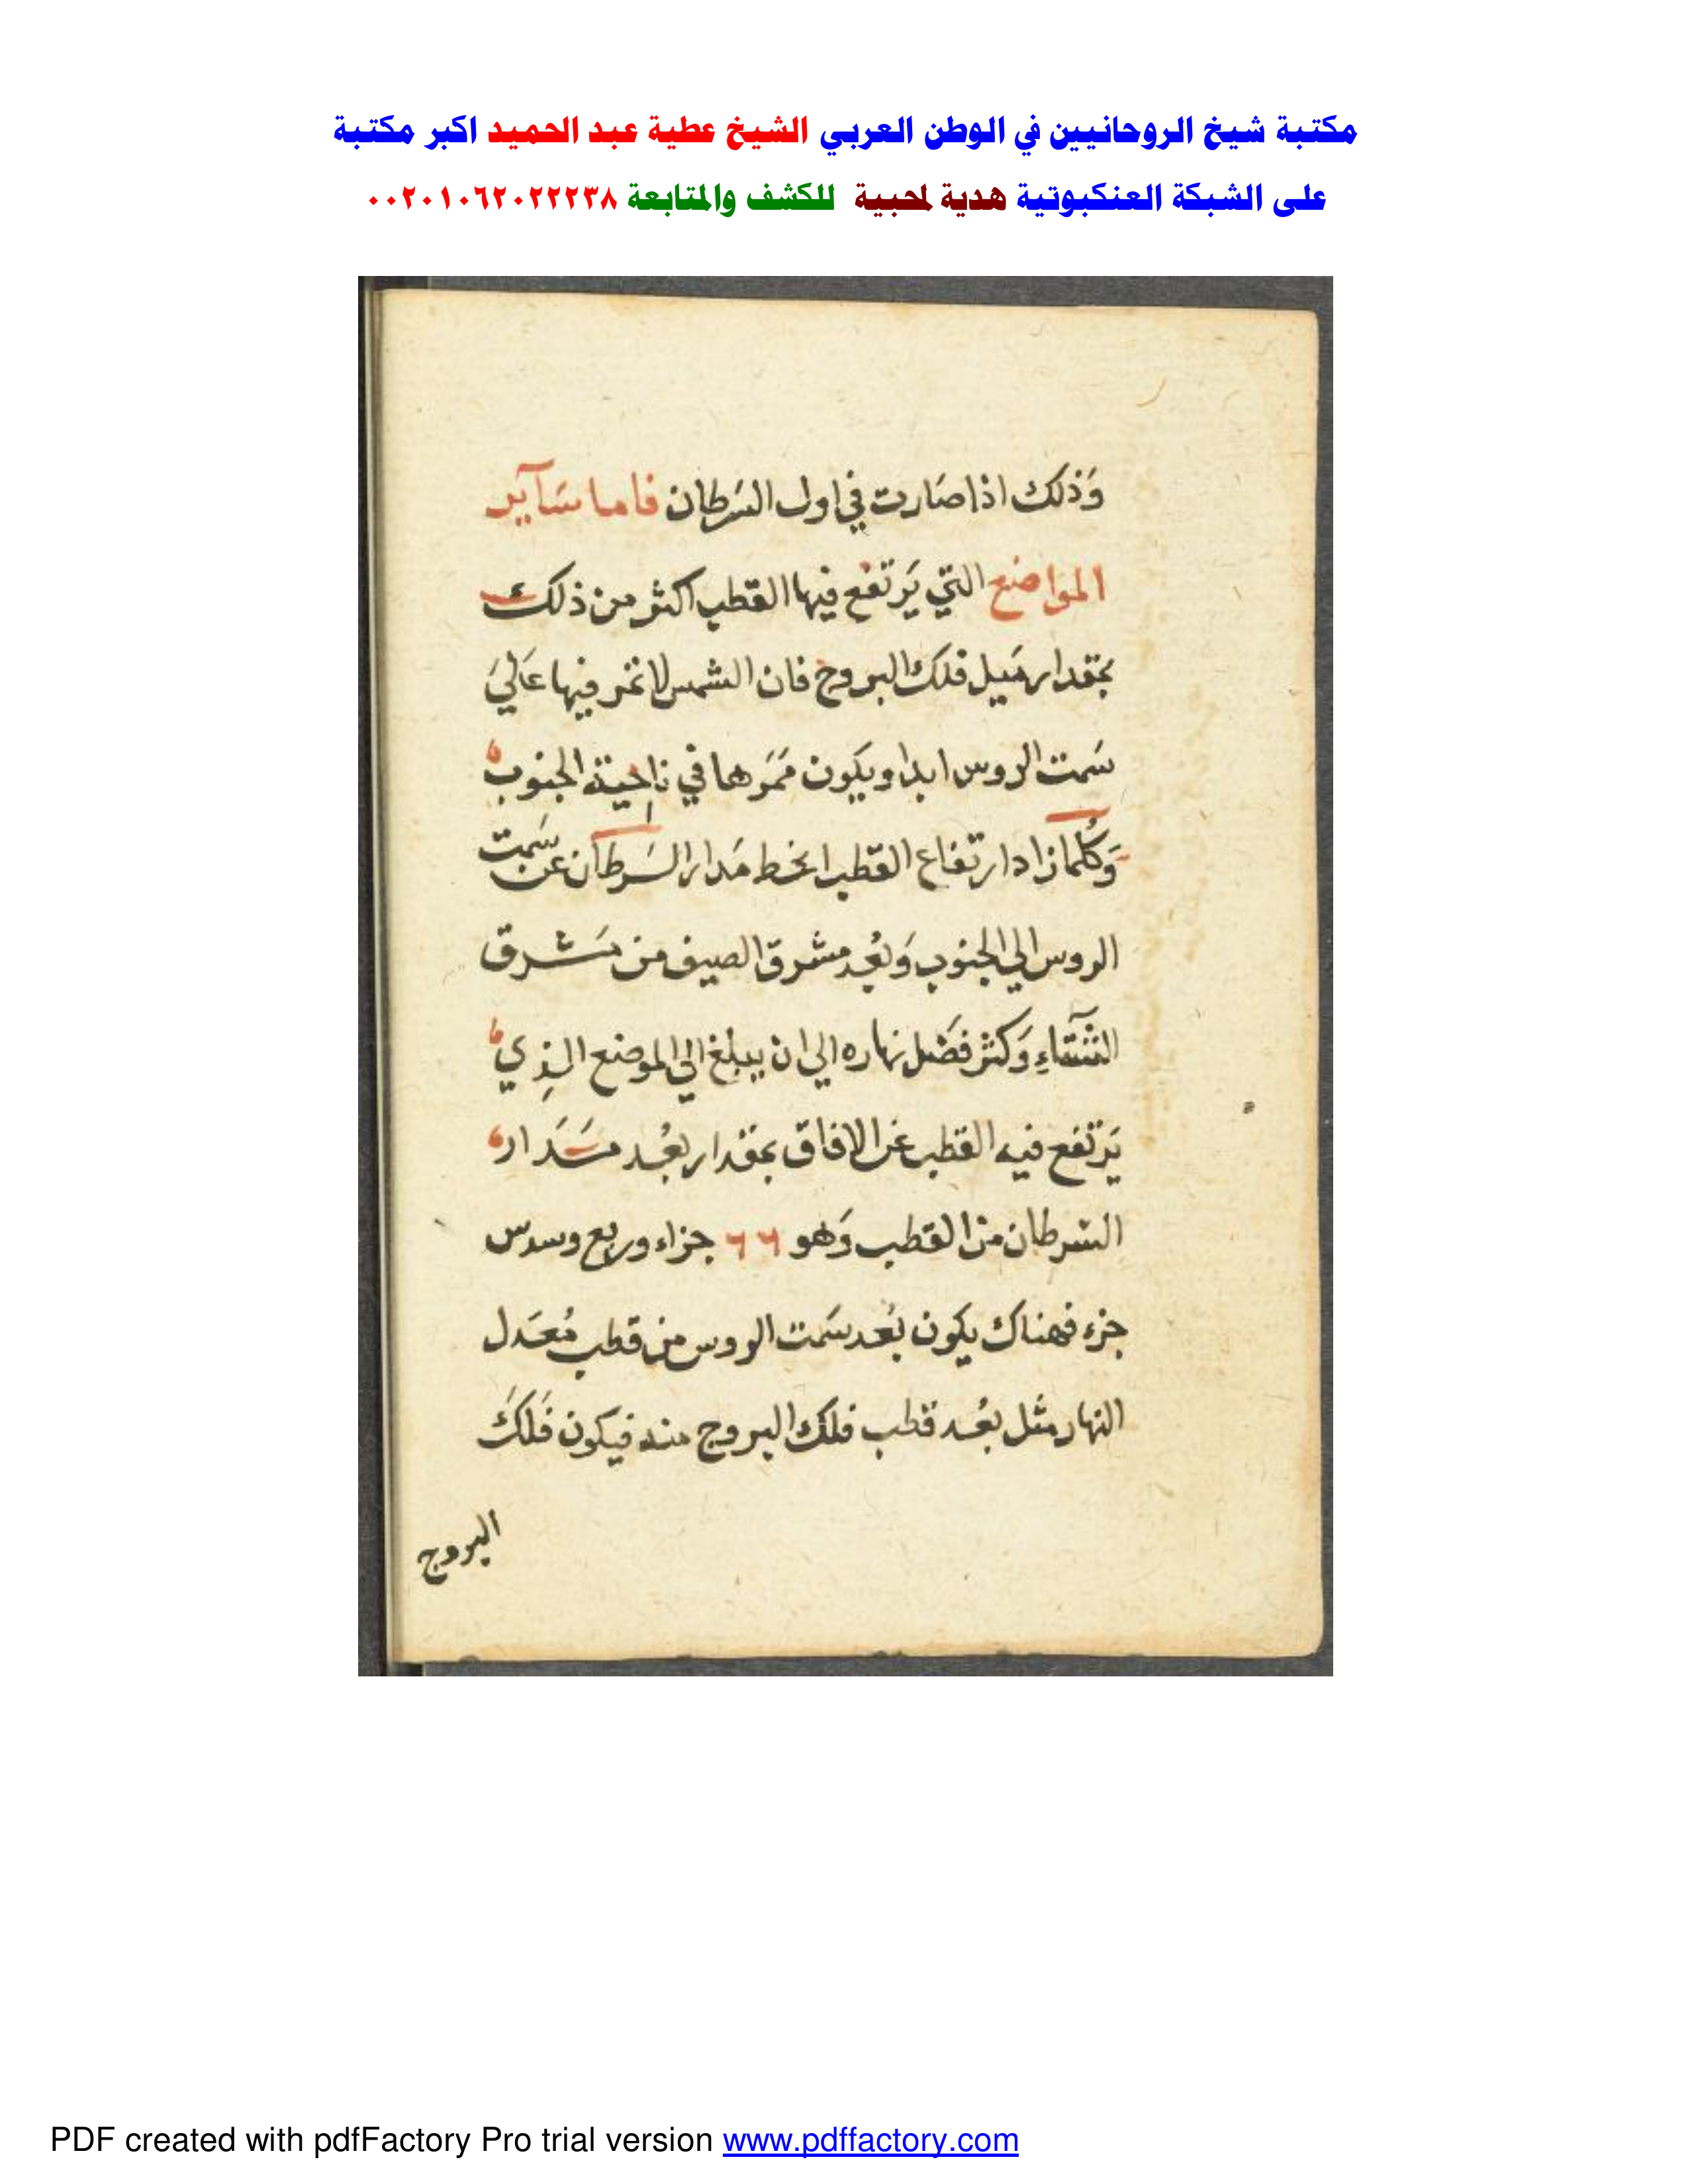 مكتبة شيخ الروحانيين في الوطن العربي الشيخ عطية عبد الحميد اكبر مكتبة
على الشبكة العنكبوتية هدية لمحبية للكشف والمتابعة ٠٠٢٠١٠٦٢٠٢٢٢٣٨
وَذلك اذا صَارت في اول السَرطان فاما سَآير
المواضع التي يَرتفع فيها القطب اكثر من ذلك
بمقدار مَيل فلك البروج فان الشمس لا تمر فيها عَلي
سَمت الروس ابدا ويكون مَمَرها في ناحية الجنوب
وَكُلما زاد ارتفاع القطب انحط مَدار السَرطان عن سَمت
الروس الي الجنوب وَبعُد مشرق الصيف من مَشرق
الشتآءِ وَكثر فضَل نهاره الي ان يبلغ الي الموضع الذِي
يَرتفع فيه القطب عَن الافاق بمقدار بعُد مَدَار
السرطان من القطب وَهو ٦٦ جزاء وربع وسدس
جزء فهناك يكون بُعد سَمت الروس من قطب مُعَدل
النهار مثل بعُد قطب فلك البروج منه فيكون فَلكَ
البروج
PDF created with pdfFactory Pro trial version www.pdffactory.com